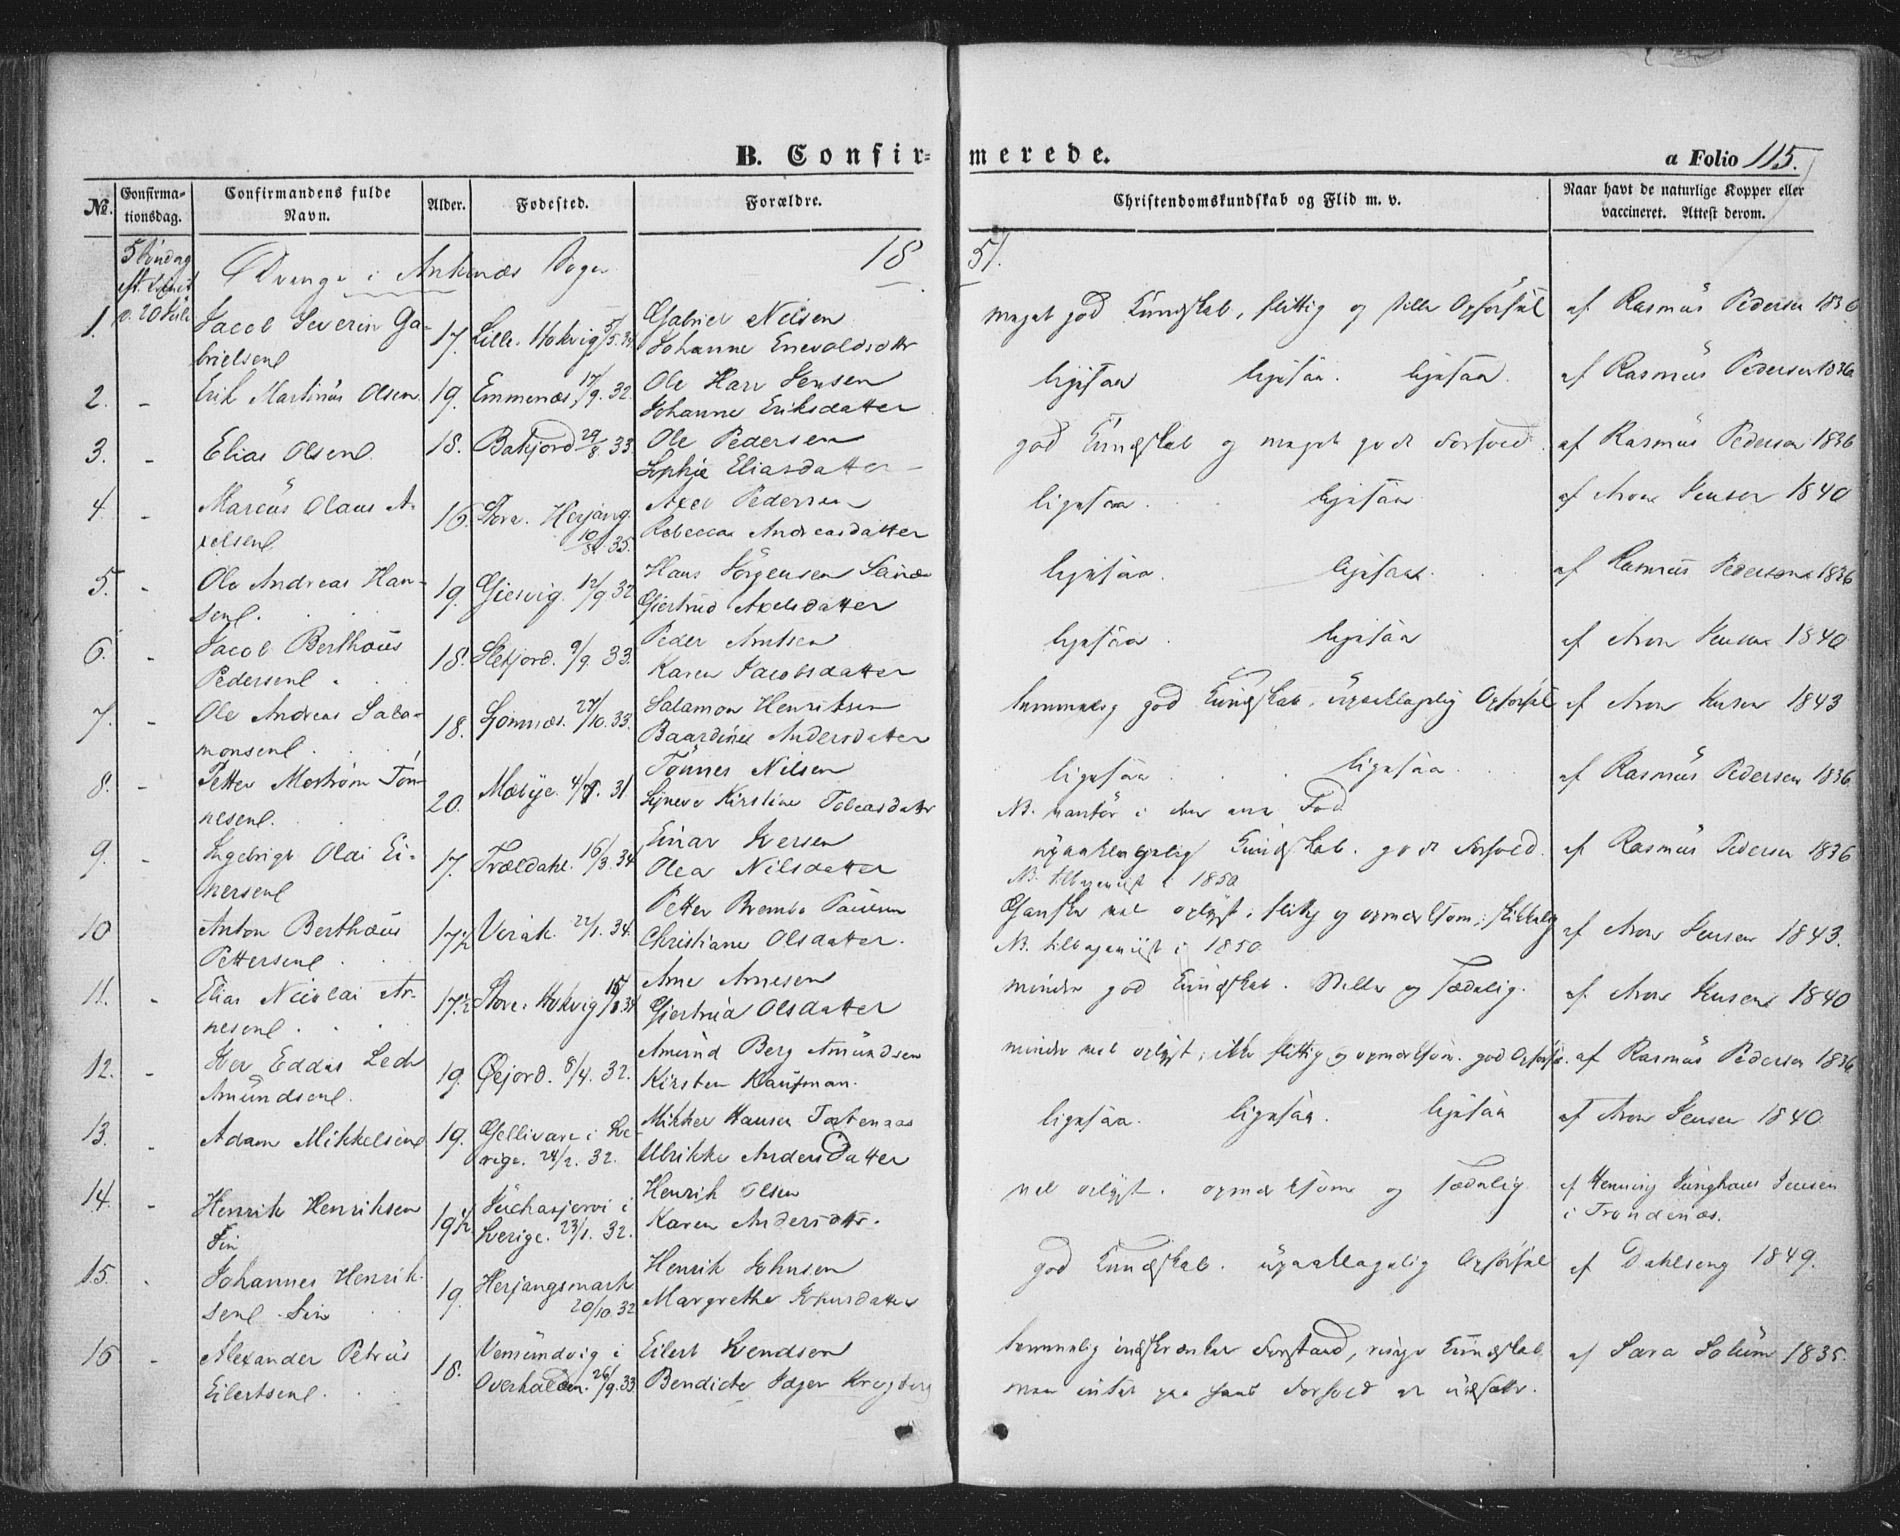 B. Confir= merede.
a Folio 115.
No. Confirmationsdag. Confirmandens fulde Navn. Alder. Fødested. Forældre. Christendomskundskab og Flid m. v. Naar havt de naturlige Kopper eller vaccineret. Attest derom.
5 Søndag
Drenge i Ankenæs Sogn 1851.
v. 20 Juli
1. Jacob Severin Ga- 17. Lille Hokvig Gabriel Nilsen meget god Kundskab, flittig og stille Opførsel af Rasmus Pedersen 1836
brielsen Johanne Enevoldsdttr
2. - Erik Martinus Olsen 19. Emmenæs 17/9. 32. Ole Hart Jensen ligesaa ligesaa. ligesaa. af Rasmus Pedersen 1836
Johanne Eriksdatter
3. - Elias Olsen 18. Bakjord 29/8 33. Ole Pedersen god Kundskab og meget godt Forhold af Rasmus Pedersen 1836
Sophie Eliasdatter
4. - Marcus Olaus A- 16. Store Herjang Axel Pedersen ligesaa ligesaa af Aron Jensen 1840
xelsen 10/8. 35. Rebecca Andreasdatter
5. - Ole Andreas Han- 19. Giesvig. 12/9 32 Hans Jörgensen ligesaa. ligesaa. af Rasmus Pedersen 1836
sen. Gjertrud Axelsdatter
6. - Jacob Berthæus 18. Sletjord. 9/9 33. Peder Arntsen ligesaa ligesaa af Aron Jensen 1840
Pedersen Karen Jacobsdatter
7. - Ole Andreas Salo- 18. 27/10. 33. Salamon Henriksen temmelig god Kundskab, upaaklagelig Opførsel af Aron Jensen 1843
monsen Andersdatter
8. - Petter Moström Tön- 20. Mæbye. 31 Tönnes Nilsen ligesaa ligesaa af Rasmus Pedersen 1836.
nesen. Kirstine Tobiasdattr NB. i den ene Fod
9. - Ingebrigt Olai Ei- 17. Trældahl. 16/3. 34 Einar Iversen upaaklagelig Kundskab. godt Forhold. af Rasmus Pedersen 1836
nersen Olea Nilsdatter NB. tilbageviist i 1850
10 Anton Berthæus 17½ Virak. 22/1. 34. Petter Brembo Paulsen Ganske vel oplyst, flittig og opmærksom, skikkelig af Aron Jensen 1843.
Pettersen Christiane Olsdatter. NB. tilbageviist i 1850
11. - Elias Nicolai Ar- 17½ Store Hokvig Arne Arnesen mindre god Kundskab. Stille og sædelig. af Aron Jensen 1840
nesen Gjertrud Olsdatter
12. - Iver Eddis Lech 19. Øejord. 8/4. 32. Amund Berg Amundsen mindre vel oplyst, ikke flittig og opmærksom. god Opførsel. af Rasmus Pedersen 1836
Amundsen. Kirsten Kaufman.
13. - Adam Mikkelsen 19. Gellivare i Sve- Mikkel Hansen ligesaa. ligesaa. ligesaa af Aron Jensen 1840
rige. 24/2. 32. Ulrikke Andersdatter
14. - Henrik Henriksen 19½ Juchasjervi i Henrik Olsen vel oplyst. opmærksom og sædelig af Henning Junghans Jensen
Fin Sverige. 23/1. 32. Karen Andersdttr. i Trondenæs.
15. - Johannes Henrik- 19. Herjangsmark Henrik Johnsen god Kundskab. upaaklagelig Opførsel af Dahlseng 1849.
sen Fin 20/10 32 Margrethe Johnsdatter
16 - Alexander Petrus 18. Vemundvig i Eilert Svendsen temmelig indskrænket Forstand, ringe Kundskab af Sara Solum 1835.
Eilertsen Overhalden. 26/9. 33 Bendicte men intet paa hans Forhold at udsætte.